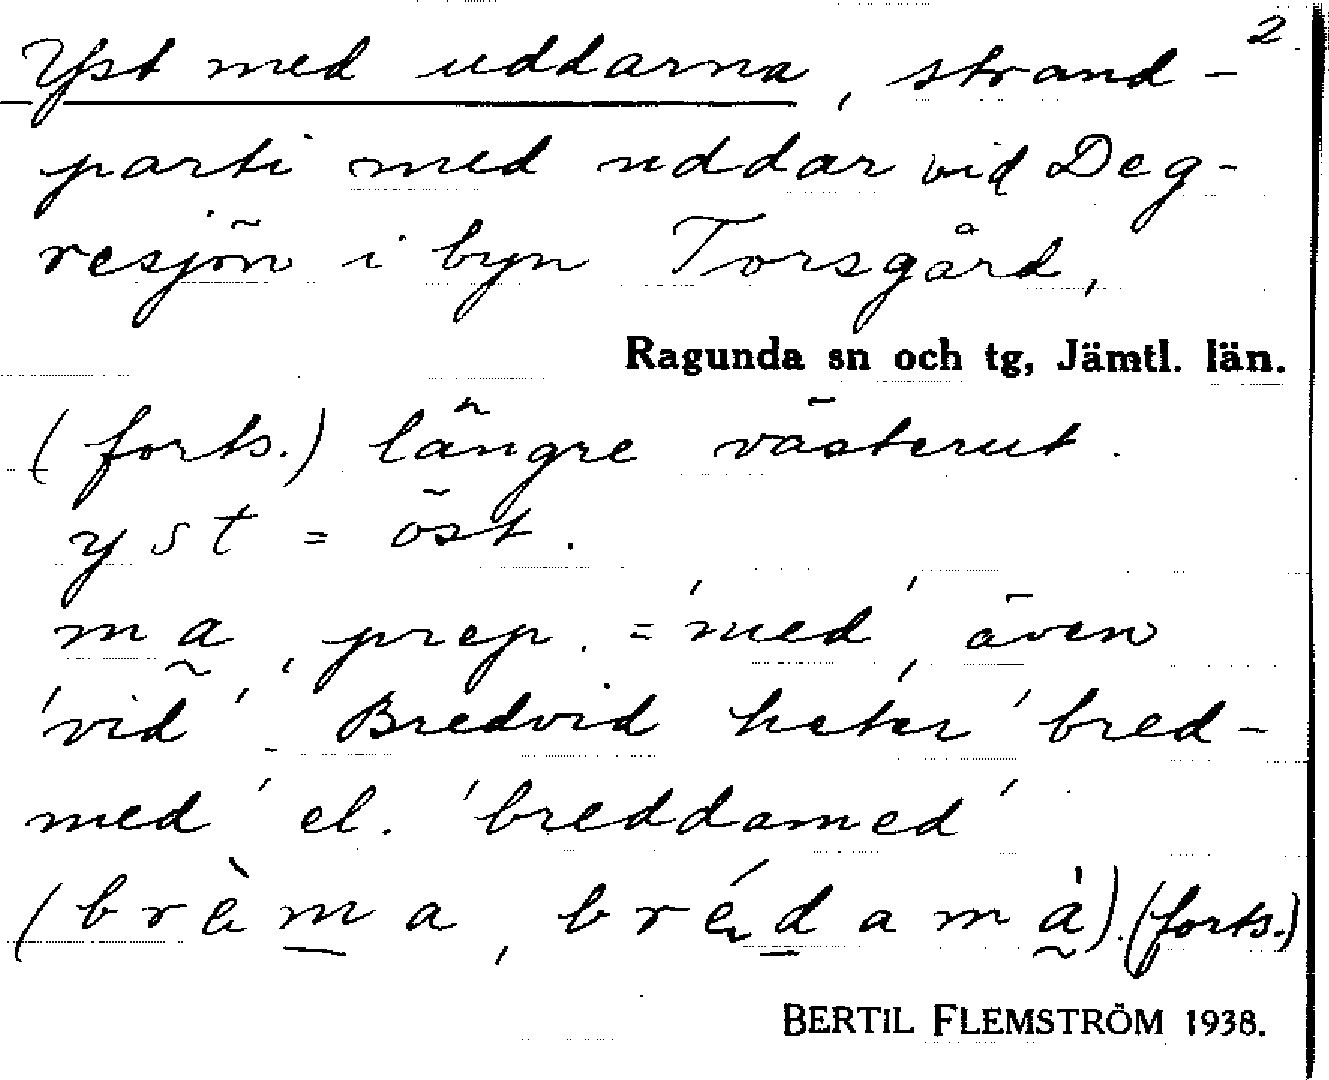 2
Yst med uddarna, strand-
parti med uddar vid Deg-
resjön i byn Torsgård,
Ragunda sn och tg, Jämtl. län.
(forts.) längre västerut.
yst = öst.
ma̰, prep. = 'med', även
'vid'. Bredvid heter 'bred-
med' el. 'breddamed'
(brèm̲a, bréd̲amá̰). (forts.)
BERTIL FLEMSTRÖM 1938.